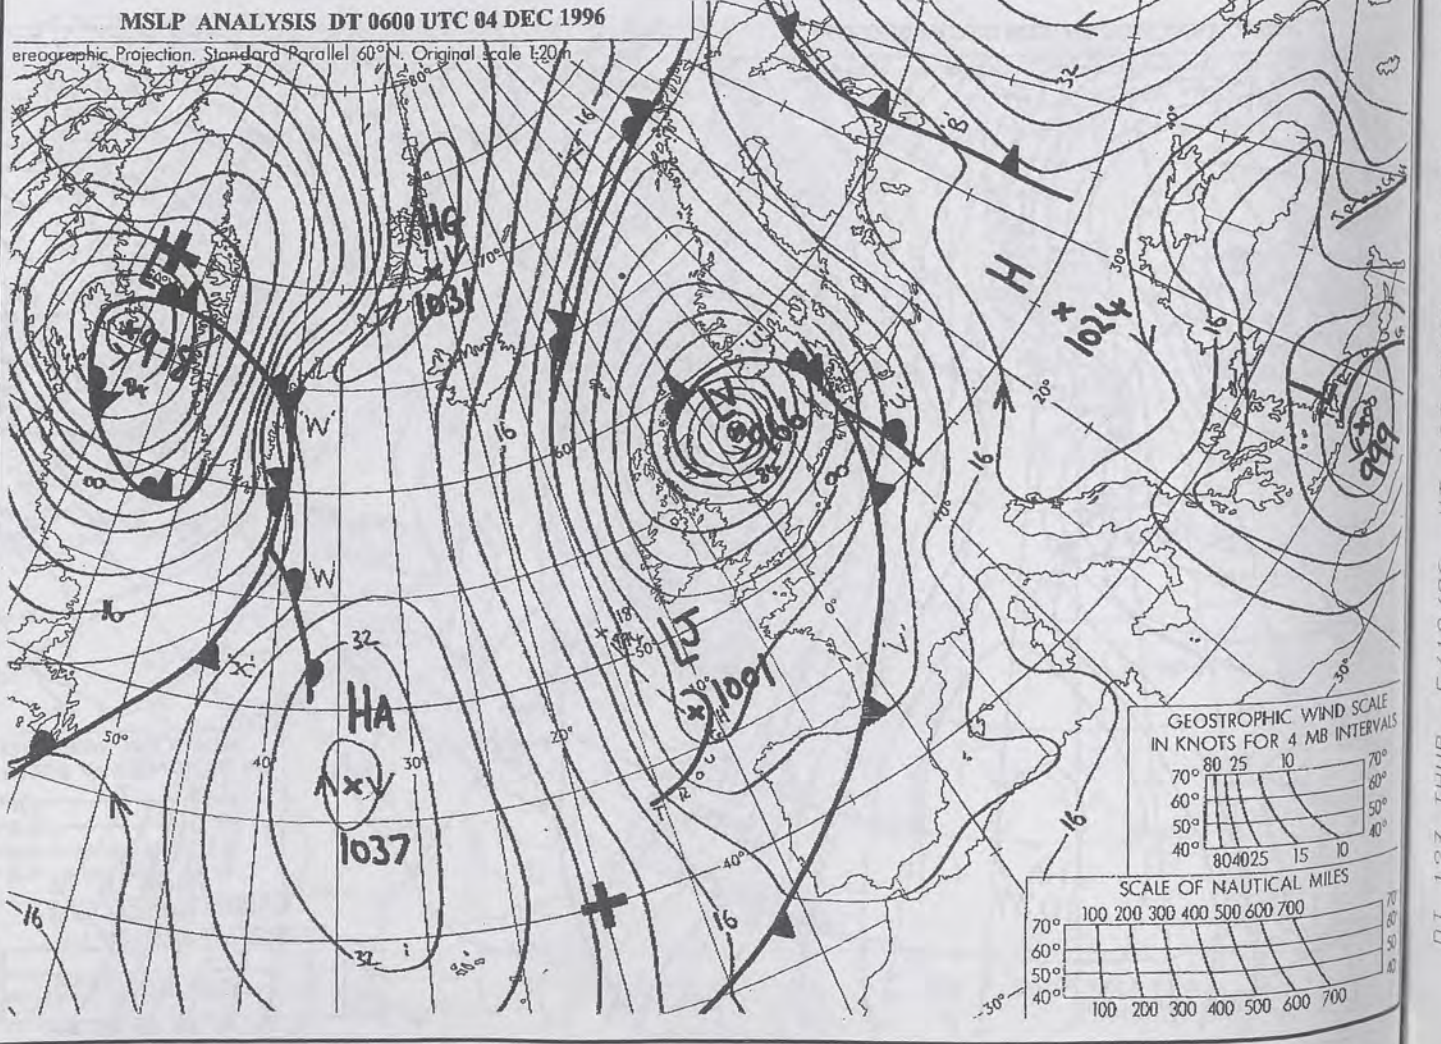 MSLP ANALYSIS DT 0600 UTC 04 DEC 1996
ereographic Projection. Standard Parallel 60°N. Original scale 1:20m
80°
16
32
'B'
HG
70°
1031
978
H
1024
30°
16
20°
'W'
16
60°
LV
966
8
16
999
8
10°
W
16
0°
32
'X'
HA
50°
LJ
1001
TROUGH
50°
40°
30°
20°
1037
40°
16
32
16
16
30°
30°
GEOSTROPHIC WIND SCALE
IN KNOTS FOR 4 MB INTERVALS
80 25 10
70° 70°
60° 60°
50° 50°
40° 40°
80 40 25 15 10
SCALE OF NAUTICAL MILES
100 200 300 400 500 600 700
70° 70
60° 60
50° 50
40° 40
100 200 300 400 500 600 700